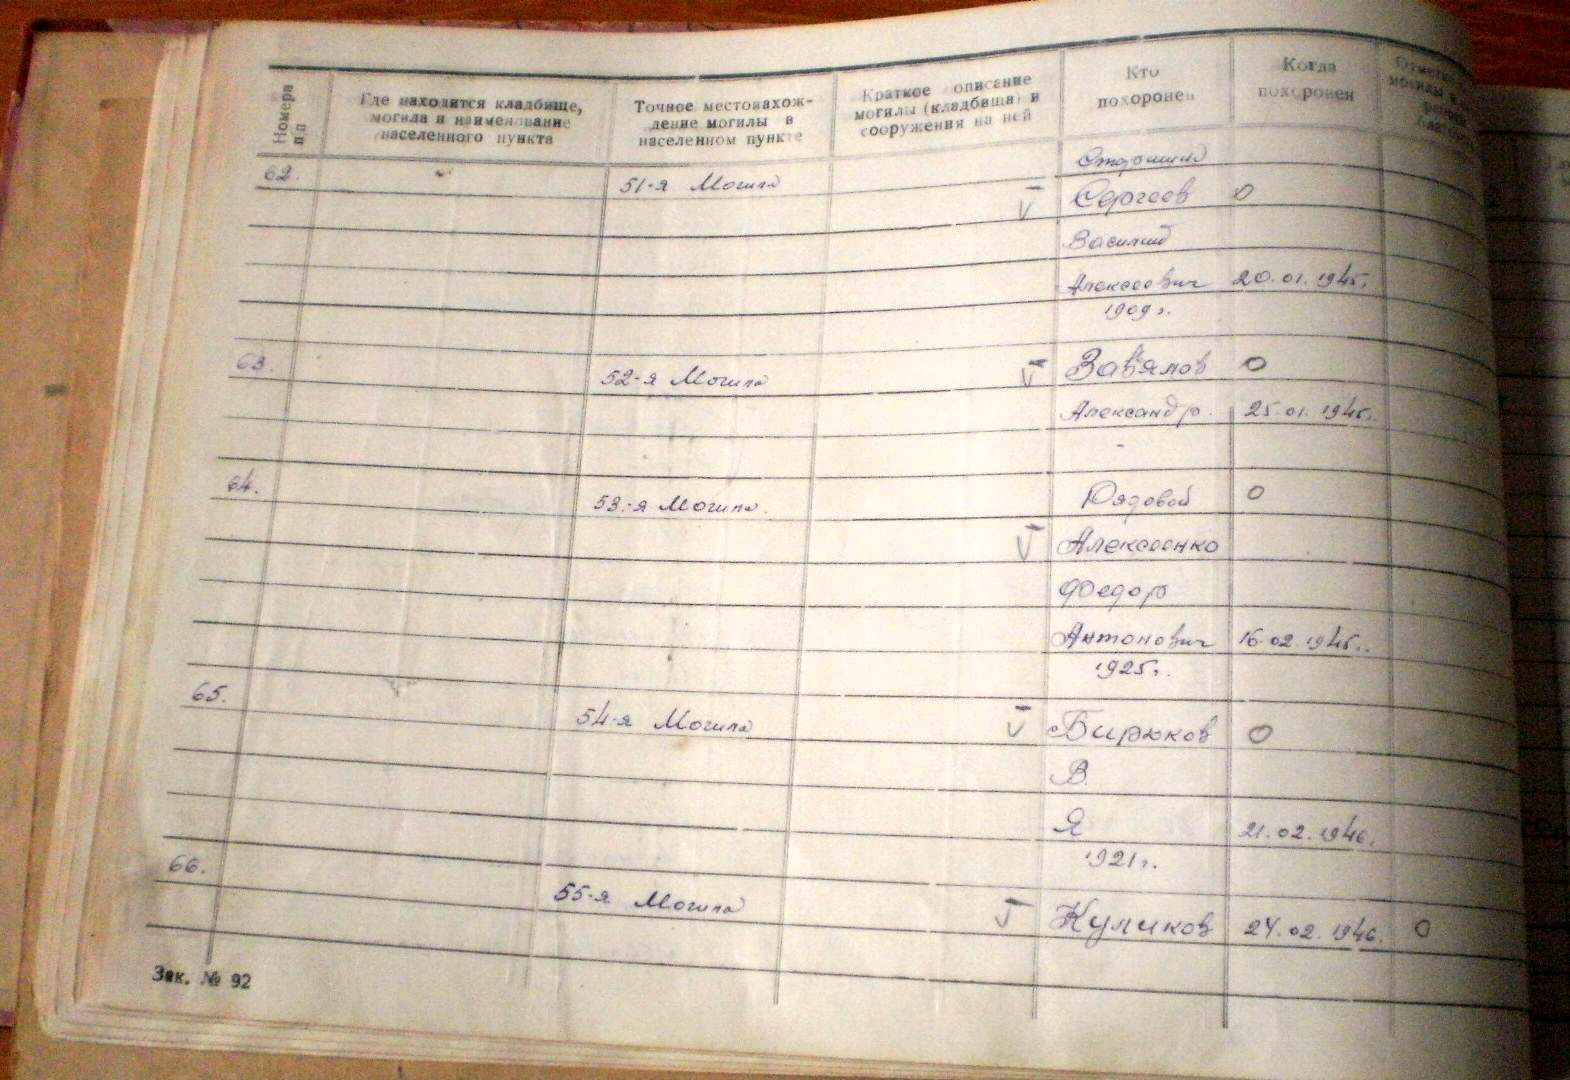 Номера п.п
Где находится кладбище,
могила и наименование
населенного пункта
Точное местонахож-
дение могилы в
населенном пункте
Краткое описание
могилы (кладбища) и
сооружения на ней
Кто
похоронен
Когда
похоронен
62. 51-я Могила
Сергеев О
Василий
Алексеевич 20.01.1945г.
1909г.
63. 52-я Могила Зав'ялов О
Александр. 25.01.1945г.
-
64. 53-я Могила. Рядовой О
Алексеенко
Федор
Антонович 16.02.1945г.
1925г.
65. 54-я Могила Бирюков О
В.
Я 21.02.1946.
1921г.
66. 55-я Могила Куликов 24.02.1946. О
Зак. № 92